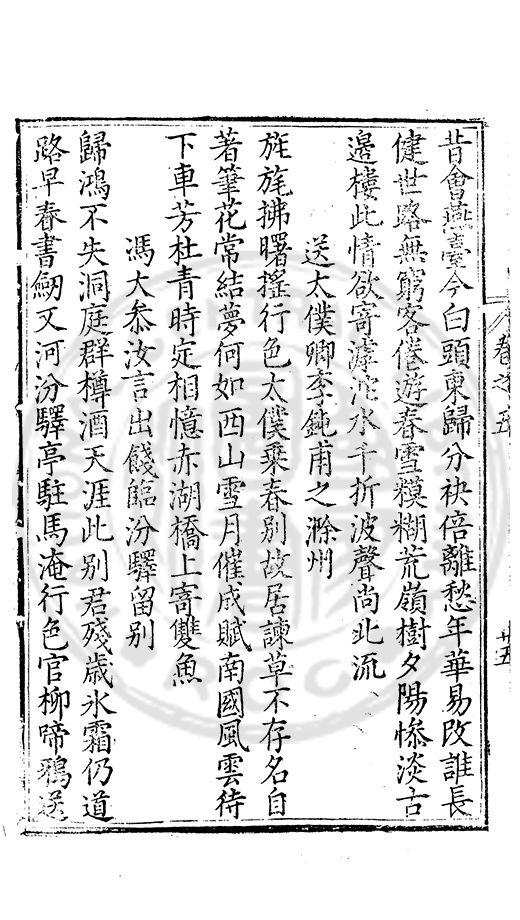 昔會燕臺今白頭東歸分袂倍離愁年華易改誰長
健世路無窮客倦遊春雪糢糊荒嶺樹夕陽慘淡古
邊樓此情欲寄滹沱水千折波聲尚北流
送太僕卿李鈍甫之滁州
旌旄拂曙搖行色太僕乘春別故居諫草不存名自
著筆花常結夢何如西山雪月催成賦南國風雲待
下車芳杜青時定相憶赤湖橋上寄雙魚
馮大參汝言出餞臨汾驛留別
歸鴻不失洞庭群樽酒天涯此別君殘歲氷霜仍道
路早春書劒又河汾驛亭駐馬淹行色官柳啼鴉送
卷之五
廿五